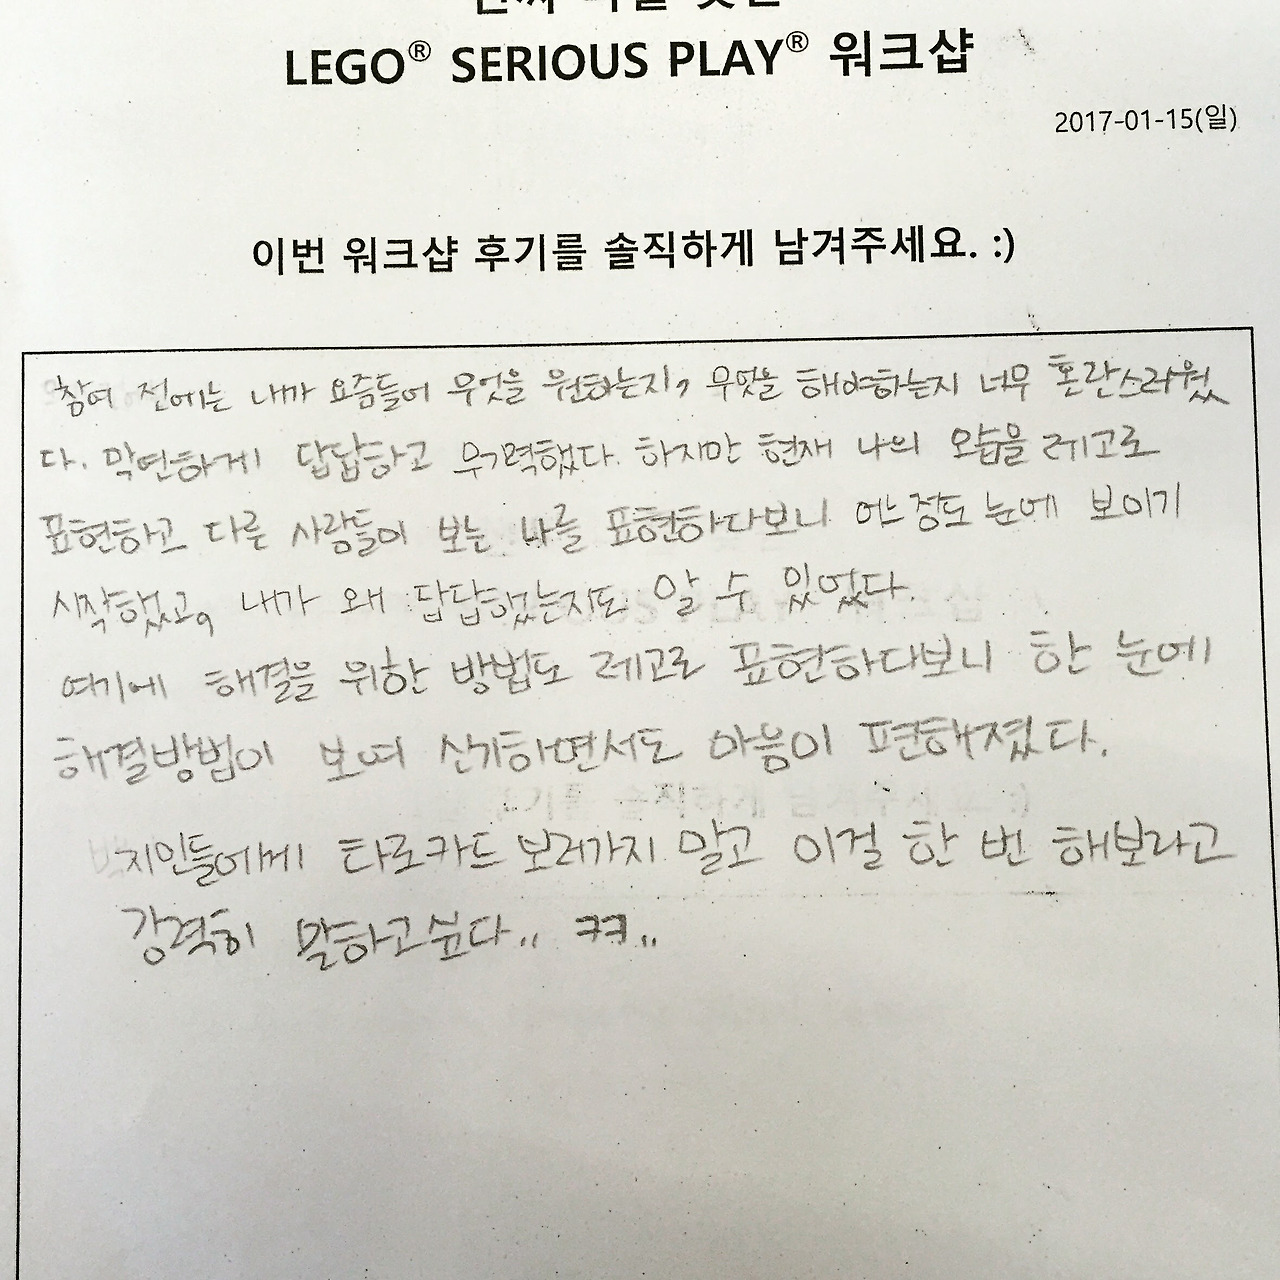 LEGO® SERIOUS PLAY® 워크샵
2017-01-15(일)
이번 워크샵 후기를 솔직하게 남겨주세요. :)
참여 전에는 내가 요즘들어 무엇을 원하는지, 무엇을 해야하는지 너무 혼란스러웠
다. 막연하게 답답하고 무기력했다. 하지만 현재 나의 모습을 레고로
표현하고 다른 사람들이 보는 나를 표현하다보니 어느정도 눈에 보이기
시작했고, 내가 왜 답답했는지도 알 수 있었다.
여기에 해결을 위한 방법도 레고로 표현하다보니 한 눈에
해결방법이 보여 신기하면서도 마음이 편해졌다.
지인들에게 타로카드 보러가지 말고 이걸 한 번 해보라고
강력히 말하고싶다.. ㅋㅋ..